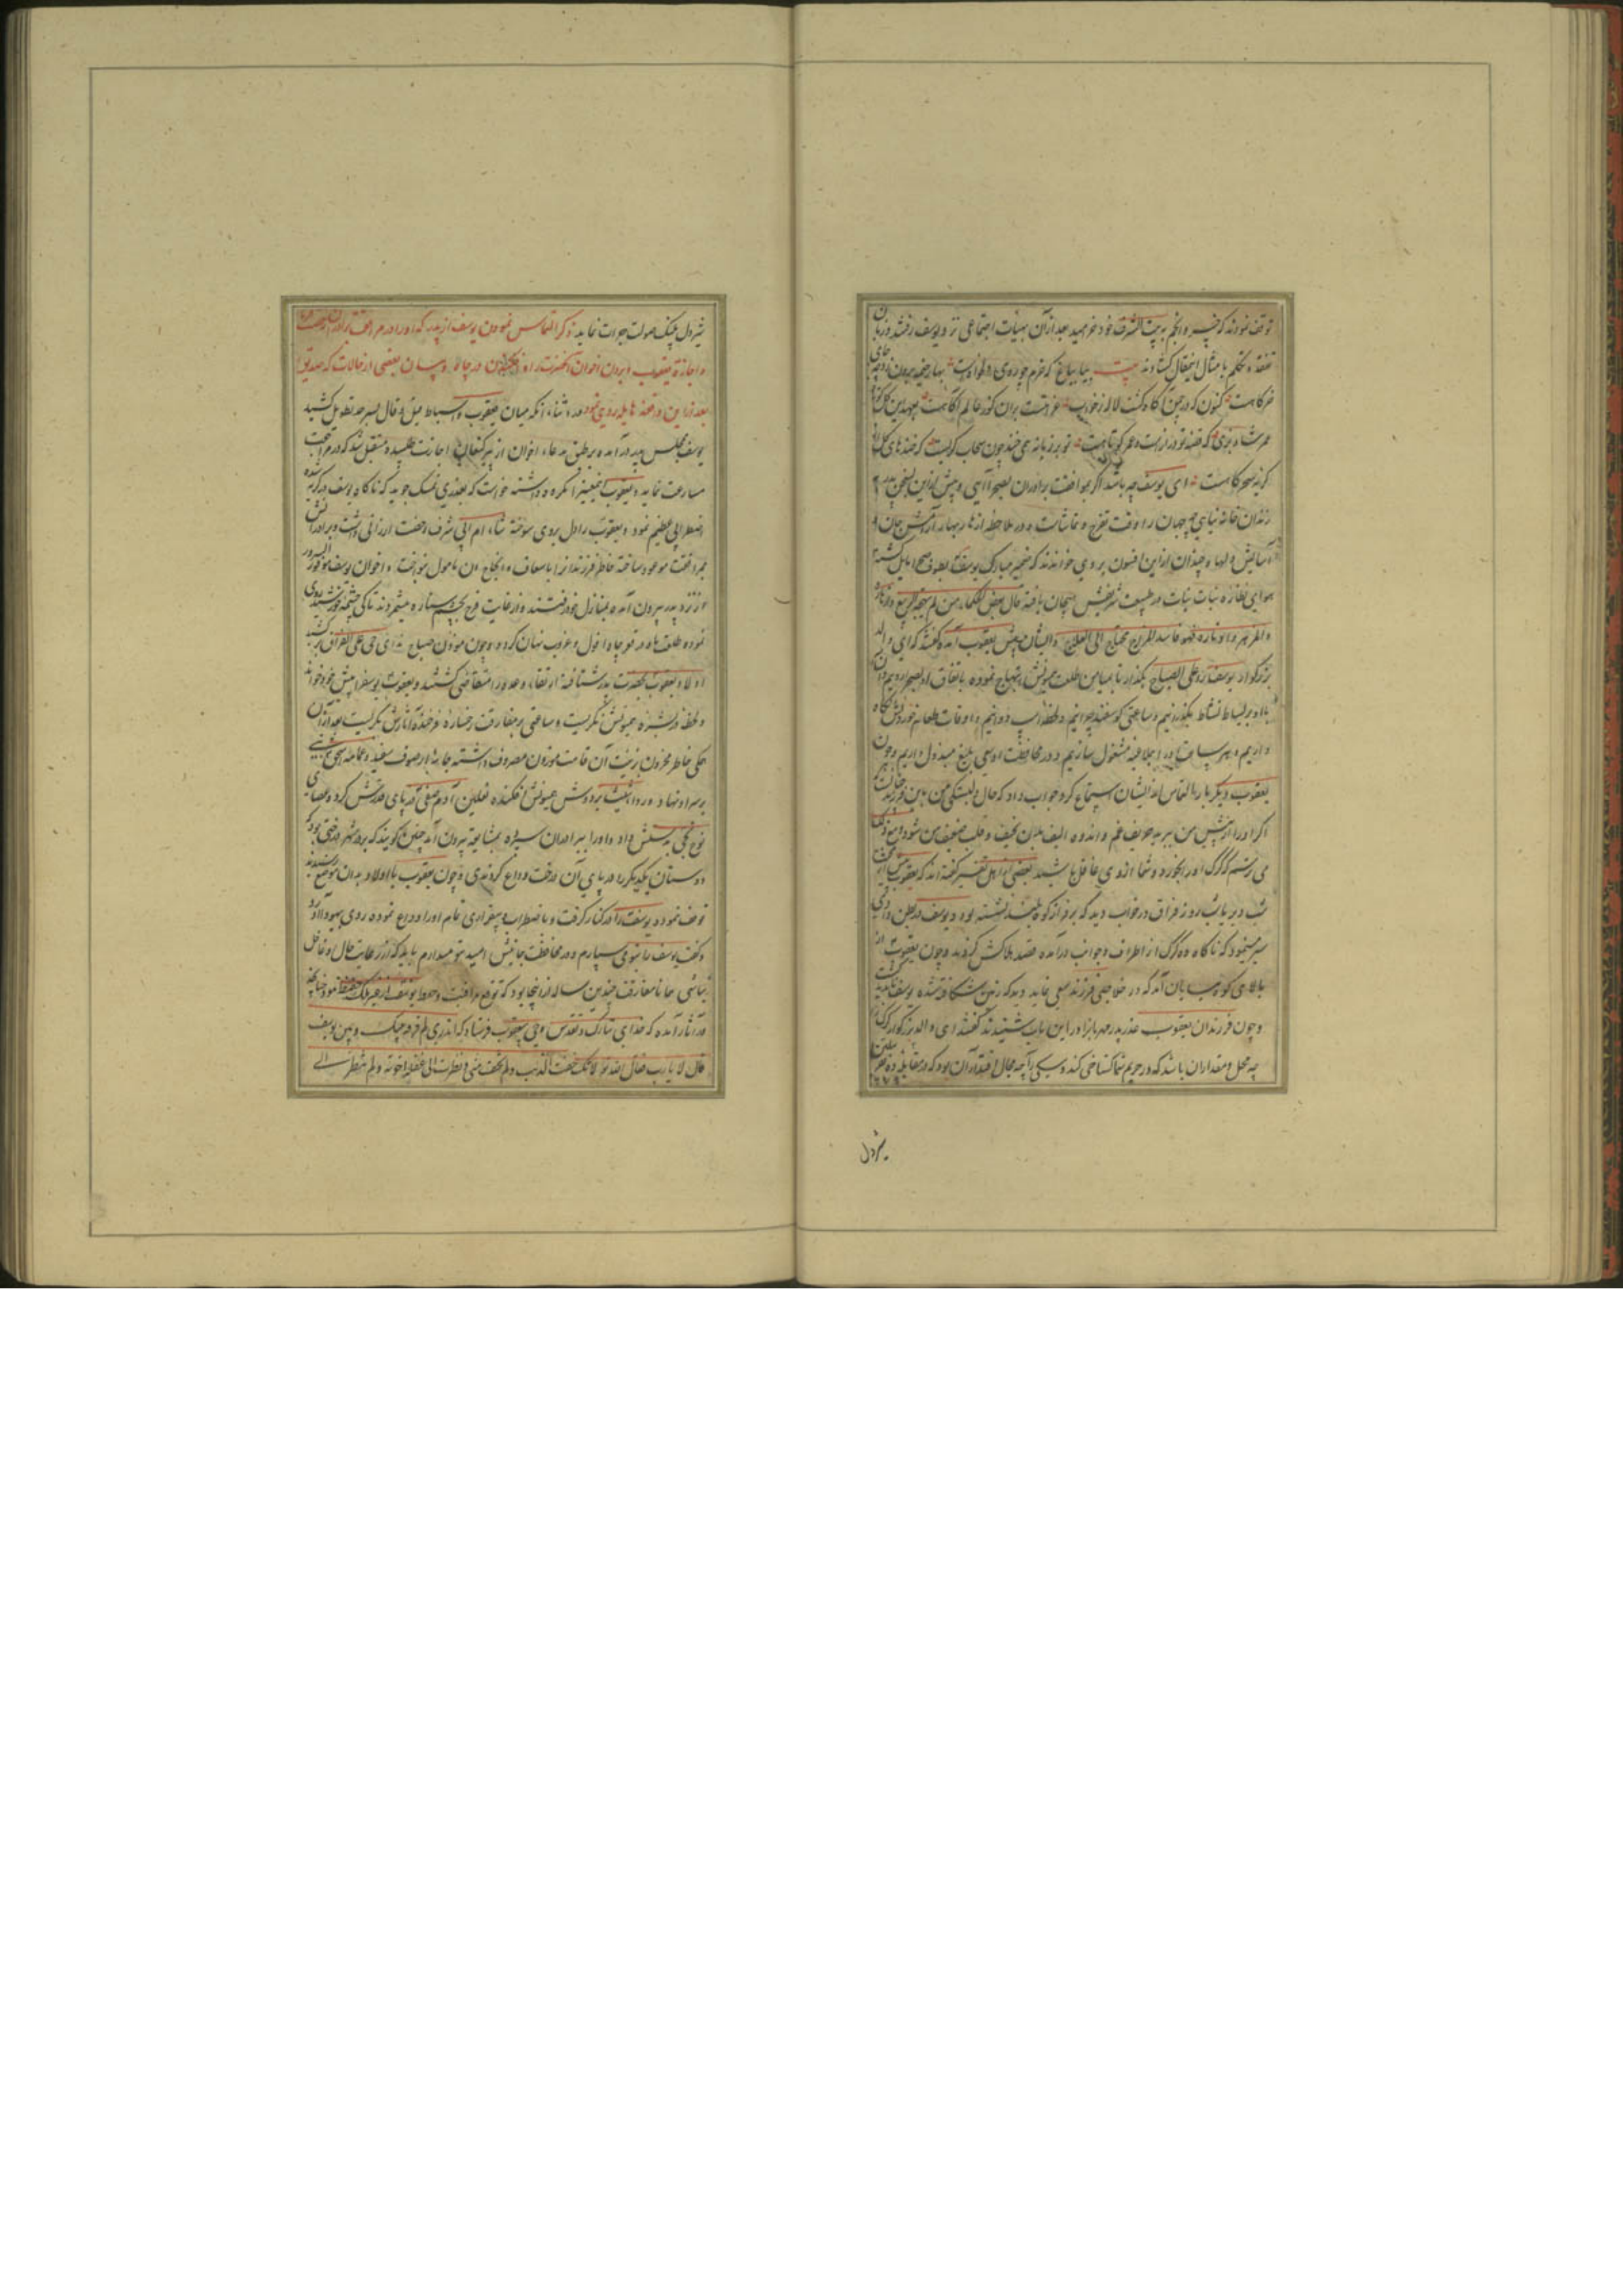 توقف نمودند که خسرو انجم به بیت الشرف خود خرامید بعد ازآن بهیات اجتماعی نزد یوسف رفتند و زبان
تفقد و تکلم با مثال این مقال گشادند بیت بیا بباغ که خرم چو روی دلخواه است بهار خیمه برون زد چه جای
خرگاهست کنون که در چمن آگاه گشت لاله ز خواب غرامتست بران کو ز عالم آگاهست
عمر شاد بزی که قصه تو درازست و عمر کوتاهست تو برزمانه همی خند چون سحاب گریست که خنده های گل از
گریه سحرگاهست ای یوسف چه باشد اگر بموافقت برادران بصحرا آیی و پیش ازین بسخن پدر در
زندان خانه نیایی چه جهان را وقت تفرج و تماشاست و در ملاحظه ازهار بهار آرامش جان و
آسایش دلها و چندان ازاین افسون بروی خواندند که ضمیر مبارک یوسف بطوف صحرا مایل گشته
هوای نظاره نبات در طبیعت شریفش هیجان یافته قال بعض الحکماء من لم یهیجه الربیع و ازهاره
والمزهر و اوتاره فهو فاسد المزاج محتاج الی العلاج و ایشان پیش یعقوب آمده گفتند که ای والد
بزرگوار یوسف را علی الصباح بگذار تا بمیامن طلعت میمونش ابتهاج نموده باتفاق او بصحرا رویم و آن
با او بر بساط نشاط بگذرانیم و ساعتی گوسفند چرانیم و لحظه اسب دوانیم و اوقات طعام خوردنش نگاه
داریم و بهر ساعت او را بملاعبه مشغول سازیم و در محافظت او سعی بلیغ مبذول داریم و چون
یعقوب دیگر بار بالتماس از ایشان استماع کرد جواب داد که حال دلبستگی من باین فرزند
اگر او را از پیش من ببرید حریف غم و اندوه الیف بدن نحیف و قلب ضعیف من شود و نیز
می ترسم که گرگ او را بخورد و شما از وی غافل باشید بعضی از اهل تفسیر گفته اند که یعقوب پیش از
شب دریافت روز فراق در خواب دید که بر فراز کوه بلند نشسته بود و یوسف در بطن وادی
سیر مینمود که ناگاه ده گرگ از اطراف و جوانب درآمده قصد هلاکش کردند و چون یعقوب از
بالای کوه بپایان آمد که در خلاصی فرزند سعی نماید دید که زمین شکافته شده یوسف ناپدید گشت
و چون فرزندان یعقوب عذر پدر مهربان را در این باب شنیدند گفتند ای والد بزرگوار گرگ را
چه محل و مقدار آن باشد که در حریم شما گستاخی کند و سگی را چه مجال و اقتدار آن بود که در مقابله ده نفر
شیردل
شیردل پلنک صولت جرات نماید ذکر التماس نمودن یوسف از پدر که او را در مرافقت برادران رخصت
و اجازة یعقوب و بردن اخوان آنحضرت را و افکندن در چاه و بیان بعضی از حالات که صدیق را
بعد ازاین واقعه هایله روی نمود در اثناء آنکه میان یعقوب و اسباط قیل و قال بسرحد تطویل کشید
یوسف بمجلس پدر درآمده بر طبق مدعاء اخوان از پیر کنعان اجازت طلبیده متقبل شد که در مراجعت
مسارعت نماید و یعقوب اینمعنی را مکروه داشته خواست که بعذری تمسک جوید که ناگاه یوسف در گریه شده
اضطرابی عظیم نمود و یعقوب را دل بر وی سوخته شاء ام ابی شرف رخصت ارزانی داشت و برادرانش
بمرافقت موعود ساخته خاطر فرزندانرا باسعاف و انجاح آن مامول بنواخت و اخوان یوسف موفور السرور
از نزد پدر بیرون آمده بمنازل خود رفتند و از غایت فرح بچشم ستاره میشمردند تا کی چشمه خورشید روی
نموده طلعت ماه در قعر چاه افول و غروب نهان گردد و چون موذن صباح ندای حی علی الفراق بر کشید
اولاد یعقوب بحضرت پدر شتافته از تقاء وعد او را متقاضی گشتند و یعقوب یوسف را پیش خود خواند
و لحظه در بشره میمونش نگریست و ساعتی بر مفارقت رخساره فرخنده آثارش گریست بعد ازآن
همکی خاطر محزون بزینت آن قامت موزون مصروف داشته جامه از صوف سفید و عمامه اسحق نبی
بر سر او نهاد و رداء شیث بر دوش میمونش افکنده نعلین آدم صفی در پای قدرتش کرد و عصای
نوح نجی بدستش داد و او را ببرادران سپرده بمشایعه بیرون آمد چنین گویند که بر در شهر درختی بود که
دوستان یکدیگر را در پای آن درخت وداع کردندی و چون یعقوب با اولاد بدان موضع رسیدند
توقف نمود و یوسف را در کنار گرفت و با ضطراب و بیقراری تمام او را وداع نموده روی بیهودا آورد
و گفت یوسف را بتو می سپارم و در محافظت جانبش امید بتو میدارم باید که از رعایت حال او غافل
نباشی همانا مفارقت چندین ساله از اینجا بود که توقع مرافقت و حفظ یوسف از غیر ملک حفیظ نمود چنانچه
در آثار آمده که خدای تبارک و تقدس وحی بیعقوب فرستاد که اتدری لم فرقت بینک و بین یوسف
قال لا یا رب فقال الله تع لانک خفت الذئب و لم تخف منی و نظرت الی غفلة اخوته و لم تنظر الی